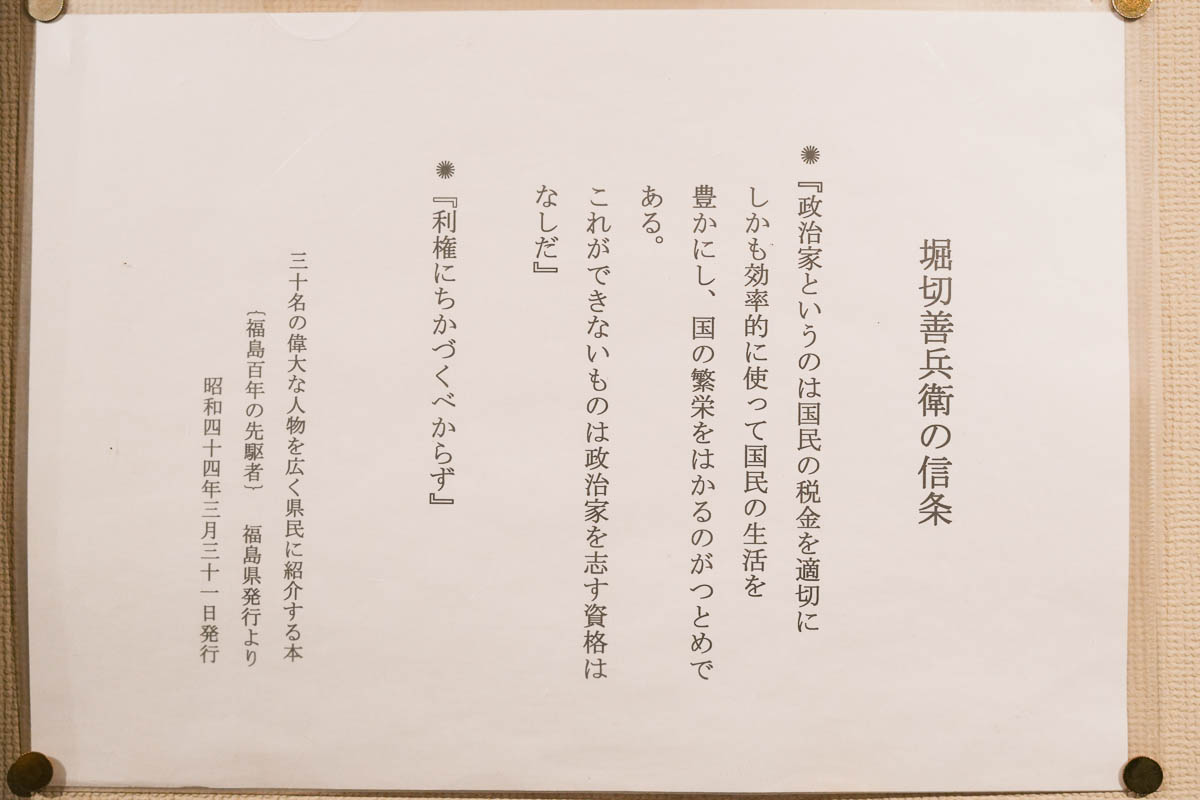 堀切善兵衛の信条
✺『政治家というのは国民の税金を適切に
しかも効率的に使って国民の生活を
豊かにし、国の繁栄をはかるのがつとめで
ある。
これができないものは政治家を志す資格は
なしだ』
✺『利権にちかづくべからず』
三十名の偉大な人物を広く県民に紹介する本
〔福島百年の先駆者〕　福島県発行より
昭和四十四年三月三十一日発行